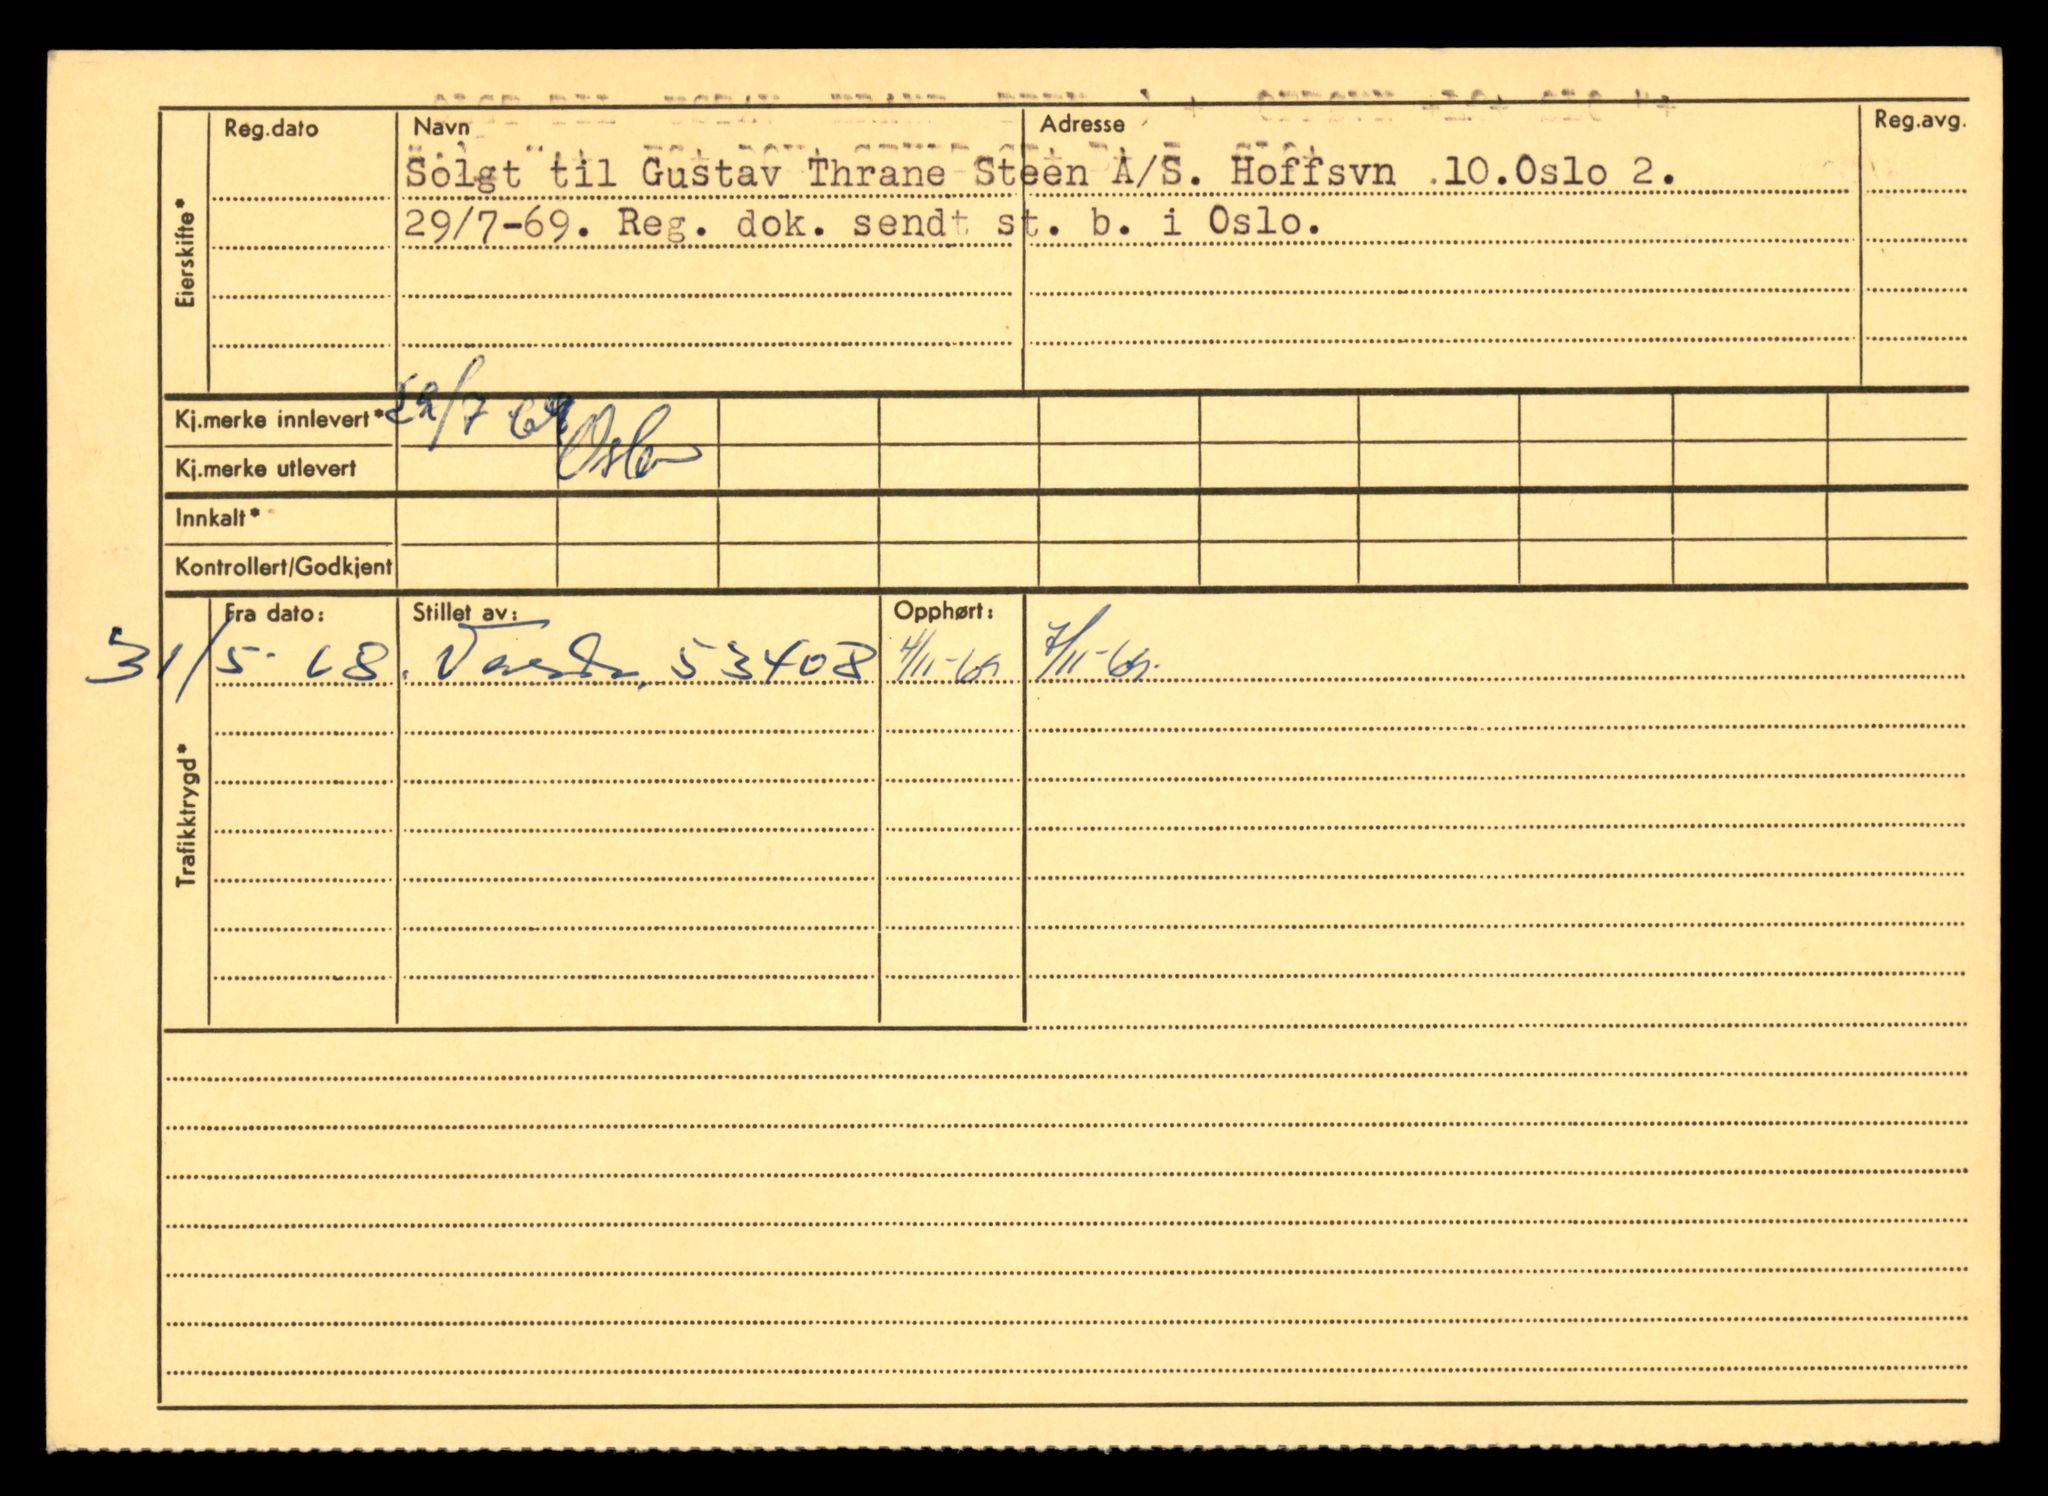 Reg.dato Navn Adresse Reg.avg.
Solgt til Gustav Thrane Steen A/S. Hoffsvn 10.Oslo 2.
29/7-69. Reg. dok. sendt st. b. i Oslo.
Eierskifte*
Kj.merke innlevert* 29/7 69 Oslo
Kj.merke utlevert
Innkalt*
Kontrollert/Godkjent
Fra dato: Stillet av: Opphørt:
31/5-68. 53408 4/11-69 7/11-69.
Trafikktrygd*